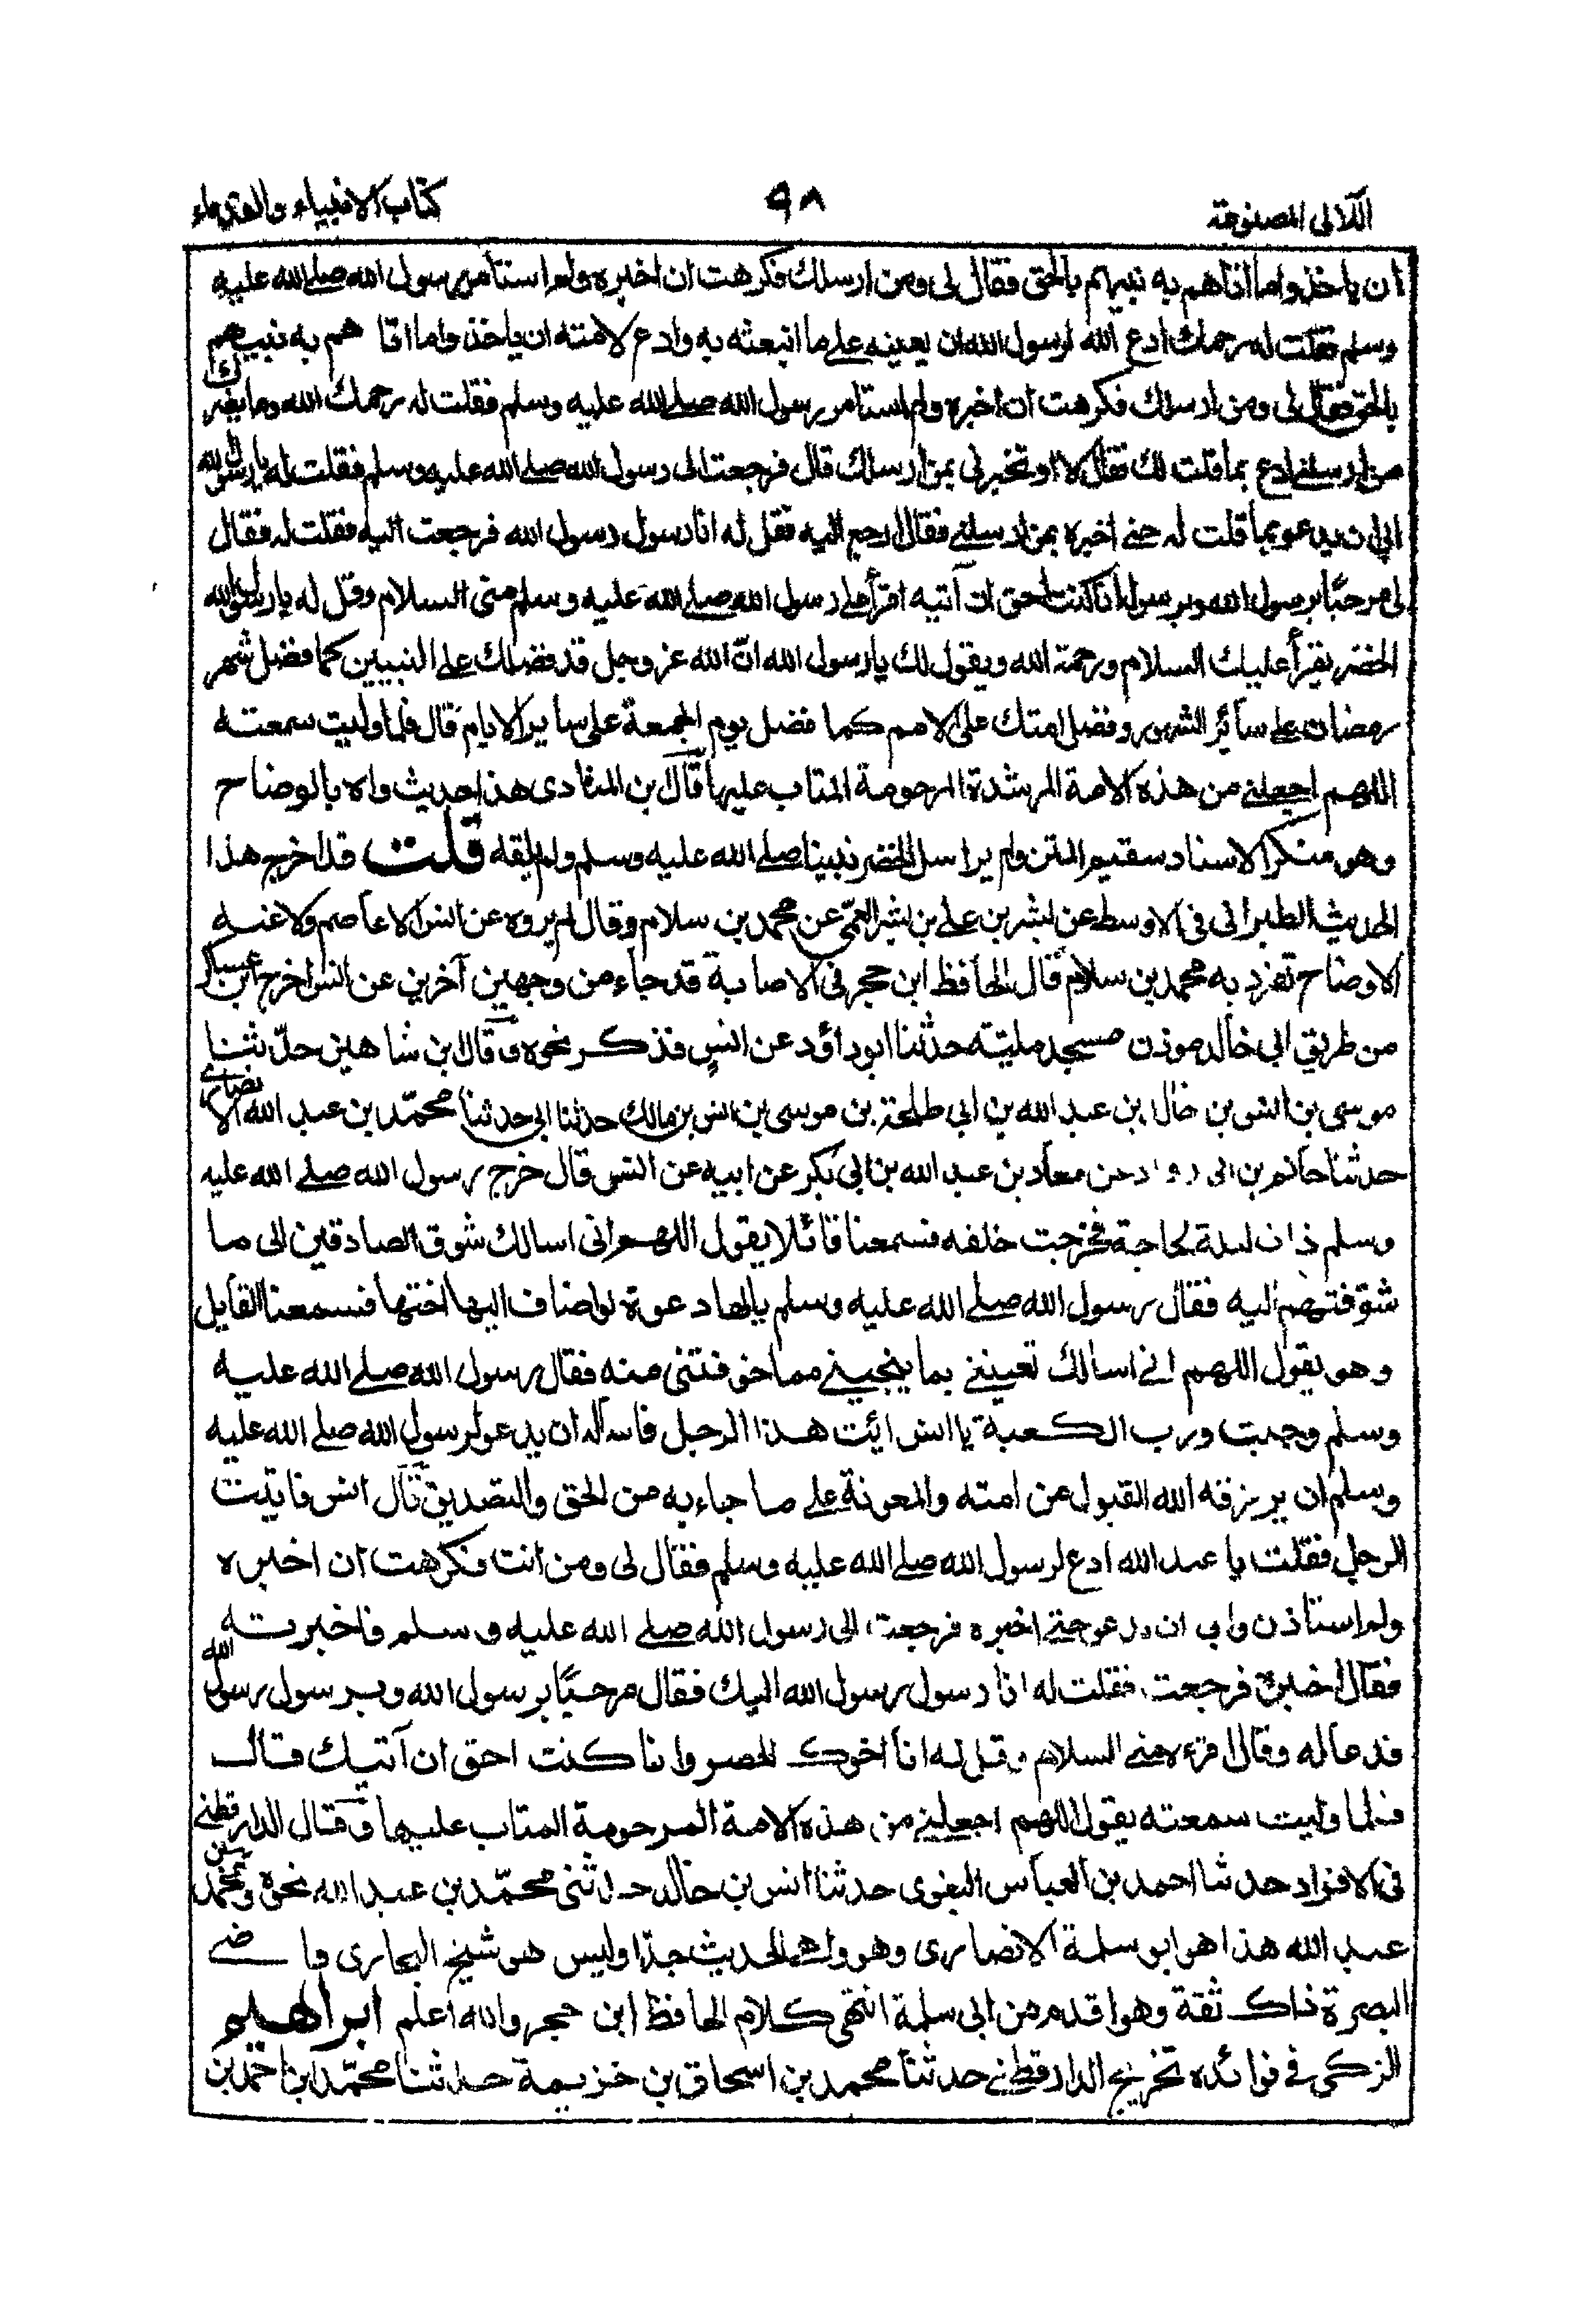 اللآلى المصنوعة ٩٨ كتاب الانبياء والقدماء
ان ياخذوا ما اتاهم به نبيهم بالحق فقال لى ومن ارسلك فكرهت ان اخبره ولم استامر رسول الله صلے الله عليه
وسلم فقلت له رحمك ادع الله لرسول الله ان يعينه علے ما ابتعثه به وادع لامته ان ياخذوا ما اتا هم به نبيهم
بالحق فقال لى ومن ارسلك فكرهت ان اخبره ولم استامر رسول الله صلے الله عليه وسلم فقلت له رحمك الله وما يضرك
من ارسلنے ادع بما قلت لك فقال لا او تخبرنى بمن ارسلك قال فرجعت الى رسول الله صلے الله عليه وسلم فقلت له يا رسول الله
ابى ان يدعو بما قلت له حتے اخبره بمن ارسلنے فقال ارجع اليه فقل له انا رسول رسول الله فرجعت اليه فقلت له فقال
لى مرحبًا برسول الله وبرسوله انا كنت احق ان آتيه اقرأ علے رسول الله صلے الله عليه وسلم منى السلام وقل له يا رسول الله
الخضر يقرأ عليك السلام ورحمة الله ويقول لك يا رسول الله انّ الله عز وجل قد فضلك علے النبيين كما فضل شهر
رمضان علے سائر الشهور وفضل امتك على الامم كما فضل يوم الجمعة على ساير الايام قال فلما وليت سمعته
اللهم اجعلنے من هذه الامة المرشدة المرحومة المتاب عليها قال بن المنادى هذا حديث واه بالوضاح
وهو منكر الاسناد سقيم المتن ولم يراسل الخضر نبينا صلے الله عليه وسلم ولم يلقه قلت قد اخرج هذا
الحديث الطبرانى فى الاوسط عن بشر بن علے بن بشر العمّى عن محمد بن سلام وقال لم يروه عن انس الا عاصم ولا عنه
الا وضاح تفرد به محمد بن سلام قال الحافظ ابن حجر فى الاصابة قد جاء من وجهين آخرين عن انس اخرج ابن عساكر
من طريق ابى خالد موذن مسجد مليّه حدثنا ابو داؤد عن انس فذكر نحوه وقال ابن شاهين حدّثنا
موسى بن انس بن خالد بن عبد الله بن ابى طلحة بن موسى بن انس بن مالك حدثنا ابى حدثنا محمّد بن عبد الله الانصارے
حدثنا حاتم بن ابى رواد عن معاذ بن عبد الله بن ابى بكر عن ابيه عن انس قال خرج رسول الله صلے الله عليه
وسلم ذات ليلة لحاجة فخرجت خلفه فسمعنا قائلا يقول اللهم انى اسالك شوق الصادقين الى ما
شوّقتهم اليه فقال رسول الله صلے الله عليه وسلم يالها دعوة لو اضاف اليها اختها فسمعنا القايل
وهو يقول اللهم انے اسالك تعيننے بما ينجينے مما خوفتنى منه فقال رسول الله صلے الله عليه
وسلم وجبت ورب الكعبة يا انس ائت هذا الرجل فاساله ان يدعو لرسول الله صلے الله عليه
وسلم ان يرزقه الله القبول عن امته والمعونة علے ما جاء به من الحق والتصديق قال انس فاتيت
الرجل فقلت يا عبد الله ادع لرسول الله صلے الله عليه وسلم فقال لى ومن انت فكرهت ان اخبره
ولم استاذن وابى ان يدعو حتے اخبره فرجعت الى رسول الله صلے الله عليه وسلم فاخبرته
فقال اخبره فرجعت فقلت له انا رسول رسول الله اليك فقال مرحبًا برسول الله وبرسول رسول الله
فدعا له وقال اقرءه منے السلام وقل له انا اخوك الخضر وانا كنت احق ان آتيك قال
فلما وليت سمعته يقول اللهم اجعلنے من هذه الامة المرحومة المتاب عليها وقال الدارقطنے
فى الافراد حدثنا احمد بن العباس البغوى حدثنا انس بن خالد حدثنى محمّد بن عبد الله نحوه ومحمد بن
عبد الله هذا هو ابو سلمة الانصارى وهو واهے الحديث جدّا وليس هو شيخ البخارى قاضے
البصرة ذاك ثقة وهو اقدم من ابى سلمة انتهى كلام الحافظ ابن حجر والله اعلم ابراهيم
الزكى فے فوائده تخريج الدارقطنے حدثنا محمد بن اسحاق بن خزيمة حدثنا محمّد ابن احمد بن